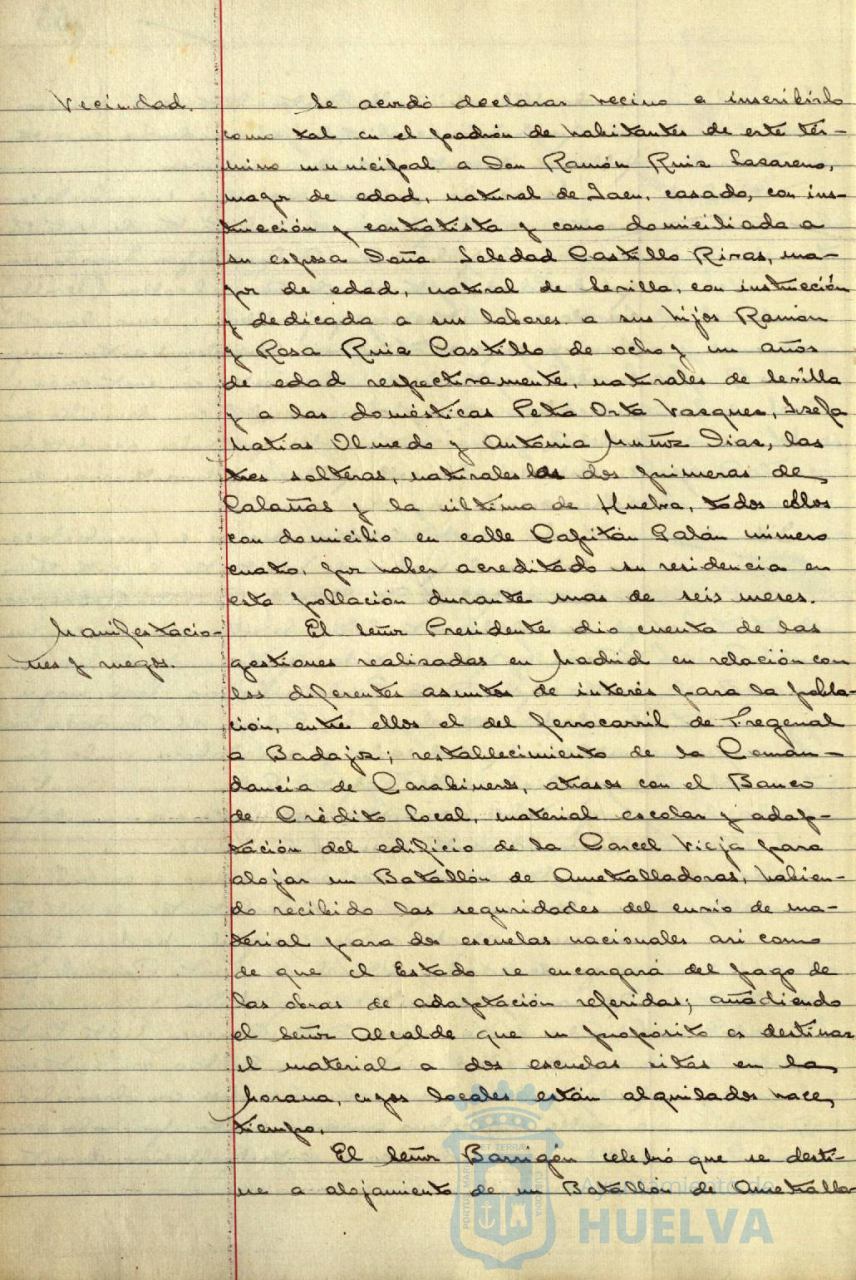 Vecindad.
Se acordó declarar vecino e inscribirlo
como tal en el padrón de habitantes de este tér-
mino municipal a Don Ramón Ruiz Lazareno,
mayor de edad, natural de Jaen, casado, con ins-
trucción y contratista y como domiciliada a
su esposa Doña Soledad Castillo Rivas, ma-
yor de edad, natural de Sevilla, con instrucción
y dedicada a sus labores a sus hijos Ramón
y Rosa Ruiz Castillo de ocho y un años
de edad respectivamente, naturales de Sevilla
y a las domésticas Petra Orta Vazquez, Josefa
Matias Olmedo y Antonia Muñoz Diaz, las
tres solteras, naturales las dos primeras de
Calañas y la última de Huelva, todos ellos
con domicilio en calle Capitán Galán número
cuatro, por haber acreditado su residencia en
esta población durante mas de seis meses.
Manifestacio-
nes y ruegos.
El Señor Presidente dio cuenta de las
gestiones realizadas en Madrid en relación con
los diferentes asuntos de interés para la pobla-
ción, entre ellos el del ferrocarril de Fregenal
a Badajoz; restablecimiento de la Coman-
dancia de Carabineros, atrasos con el Banco
de Crédito Local, material escolar y adap-
tación del edificio de la Carcel Vieja para
alojar un Batallón de Ametralladoras, habien-
do recibido las seguridades del envio de ma-
terial para dos escuelas nacionales asi como
de que el Estado se encargará del pago de
las obras de adaptación referidas; añadiendo
el Señor Alcalde que su propósito es destinar
el material a dos escuelas sitas en la
Morana, cuyos locales están alquilados hace
tiempo.
El Señor Barrigón celebró que se desti-
ne a alojamiento de un Batallón de Ametralla-
Ayuntamiento de
HUELVA